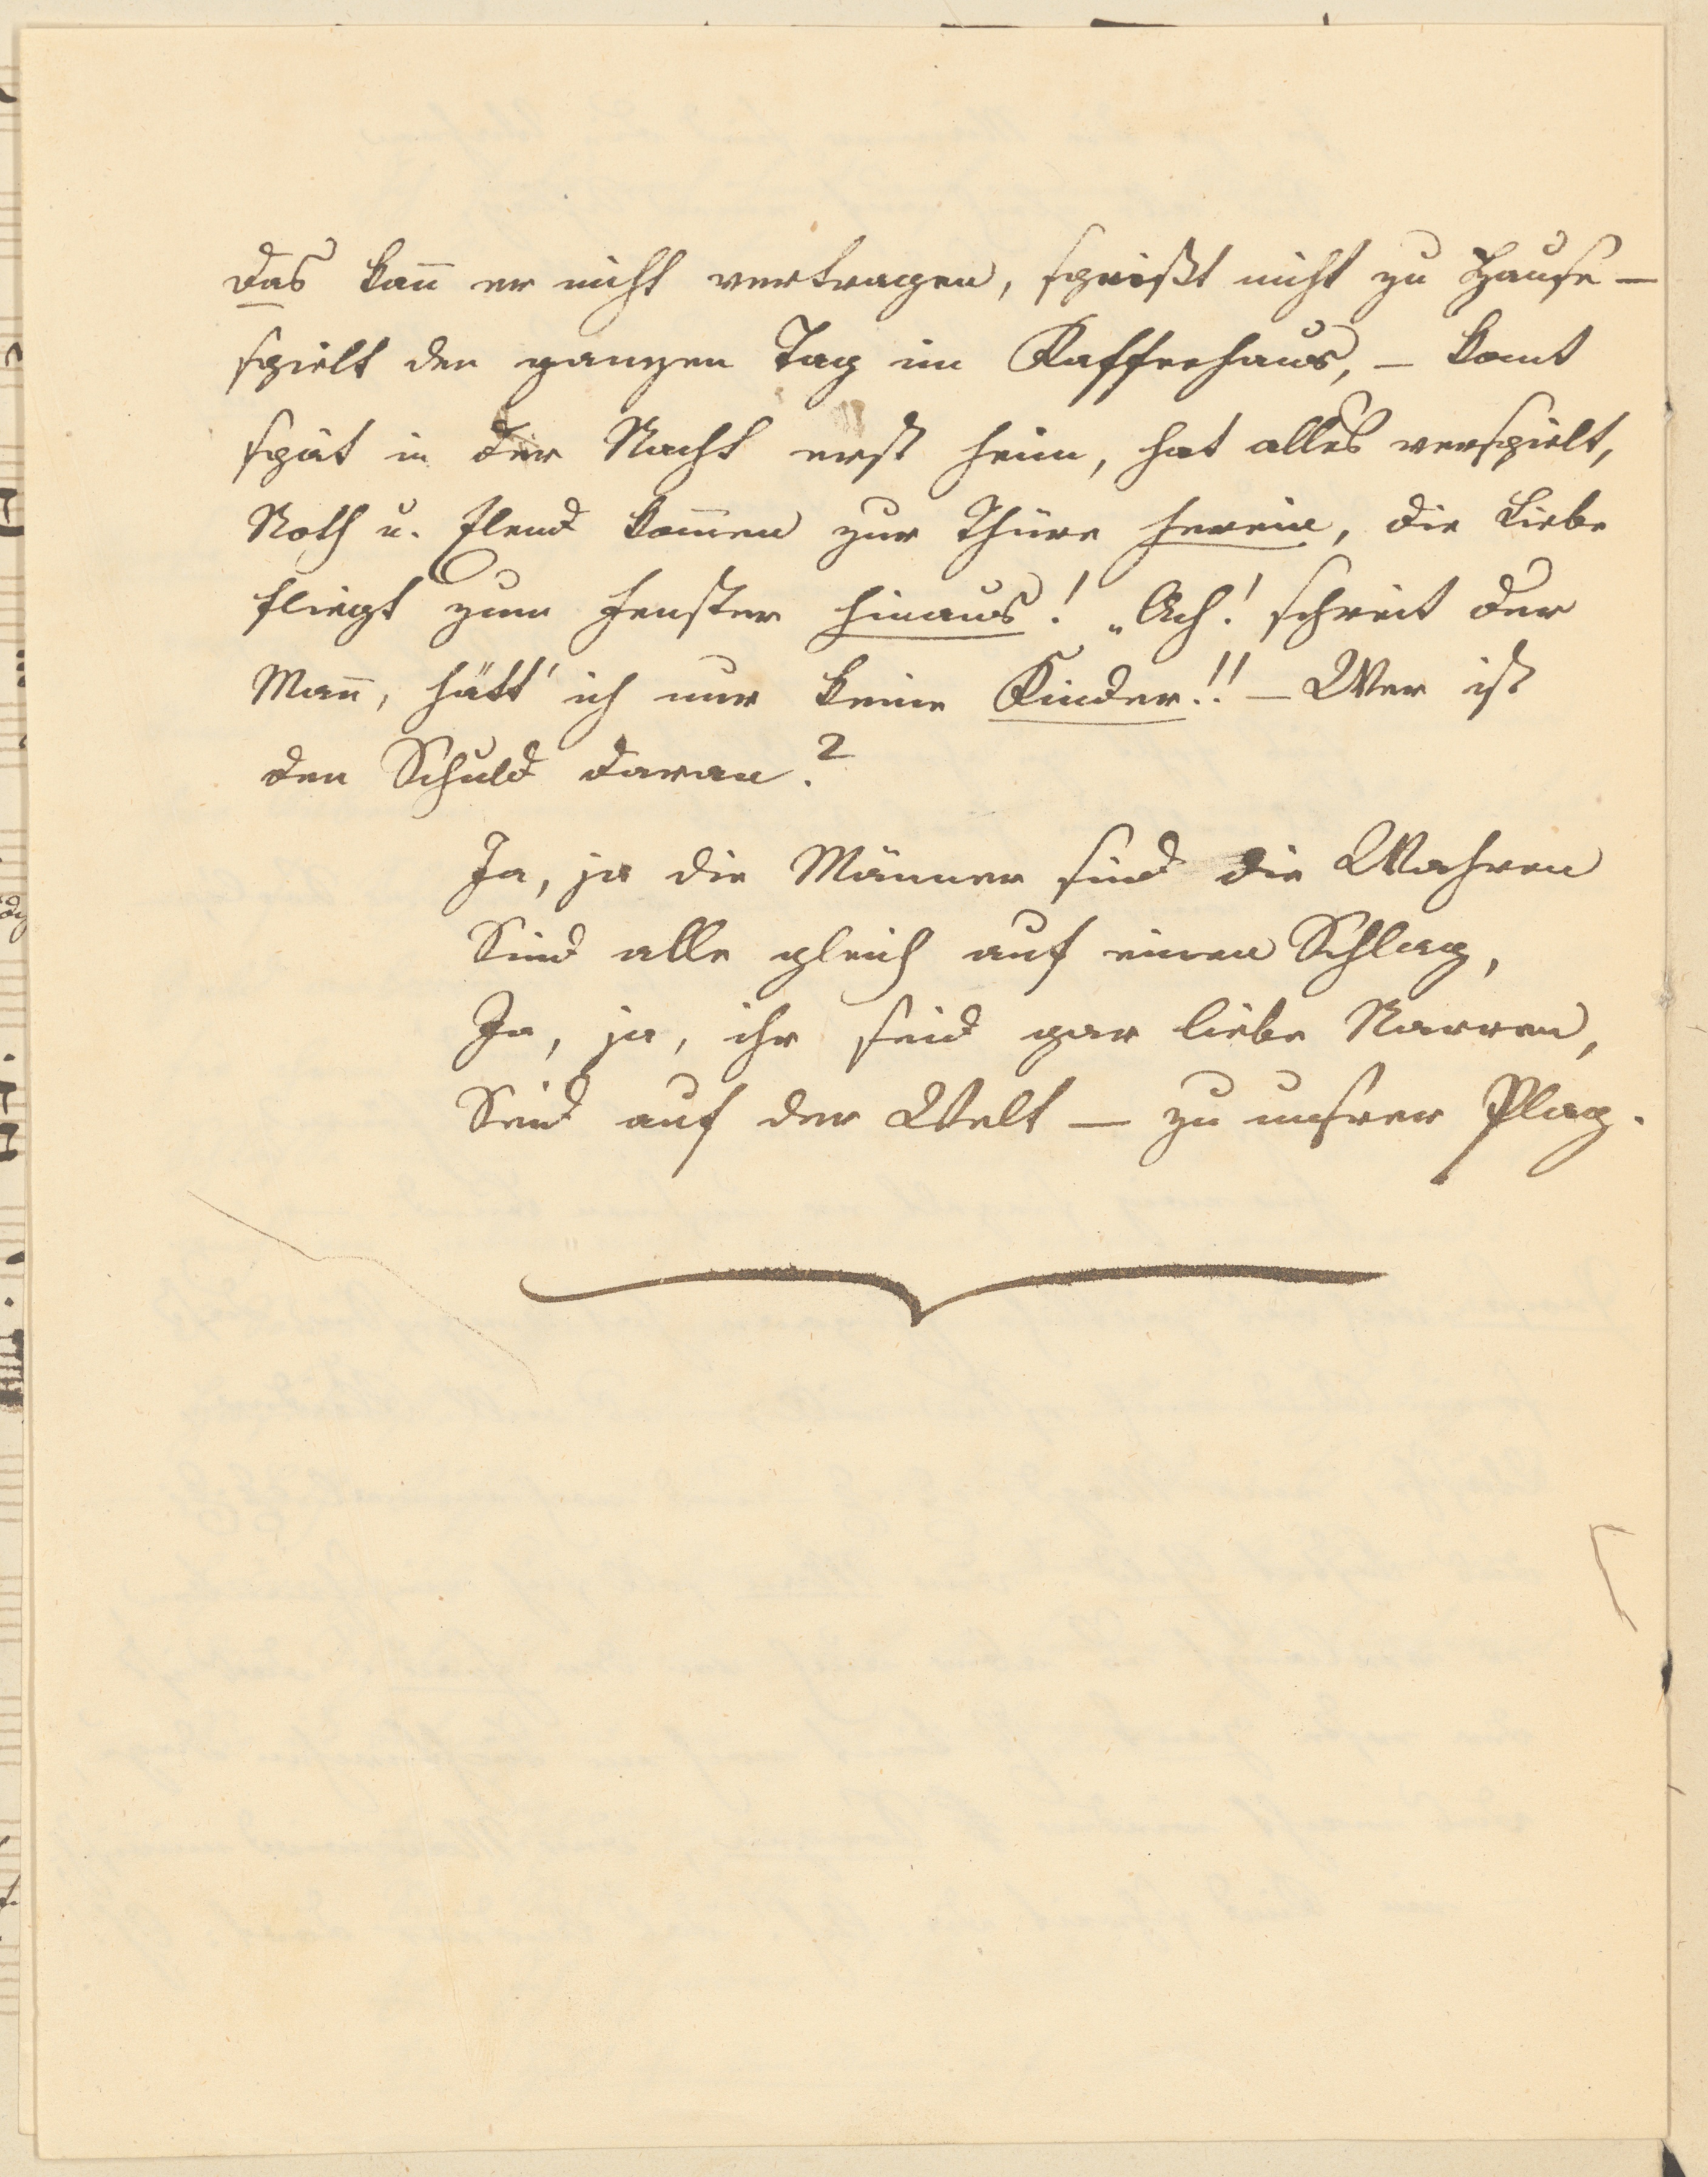 das kan̄ er nicht vertragen, speißt nicht zu Hause –
spielt den ganzen Tag im Kaffeehaus, – kom̄t
spät in der Nacht erst heim, hat alles verspielt,
Noth u. Elend kom̄en zur Thüre herein, die Liebe
fliegt zum Fenster hinaus! „Ach! schreit der
Man̄, hätt' ich nur keine Kinder!! – Wer ist
den Schuld daran?
Ja, ja die Männer sind die Wahren
Sind alle gleich auf einen Schlag,
Ja, ja, ihr seid gar liebe Narren,
Seid auf der Welt – zu unsrer Plag.